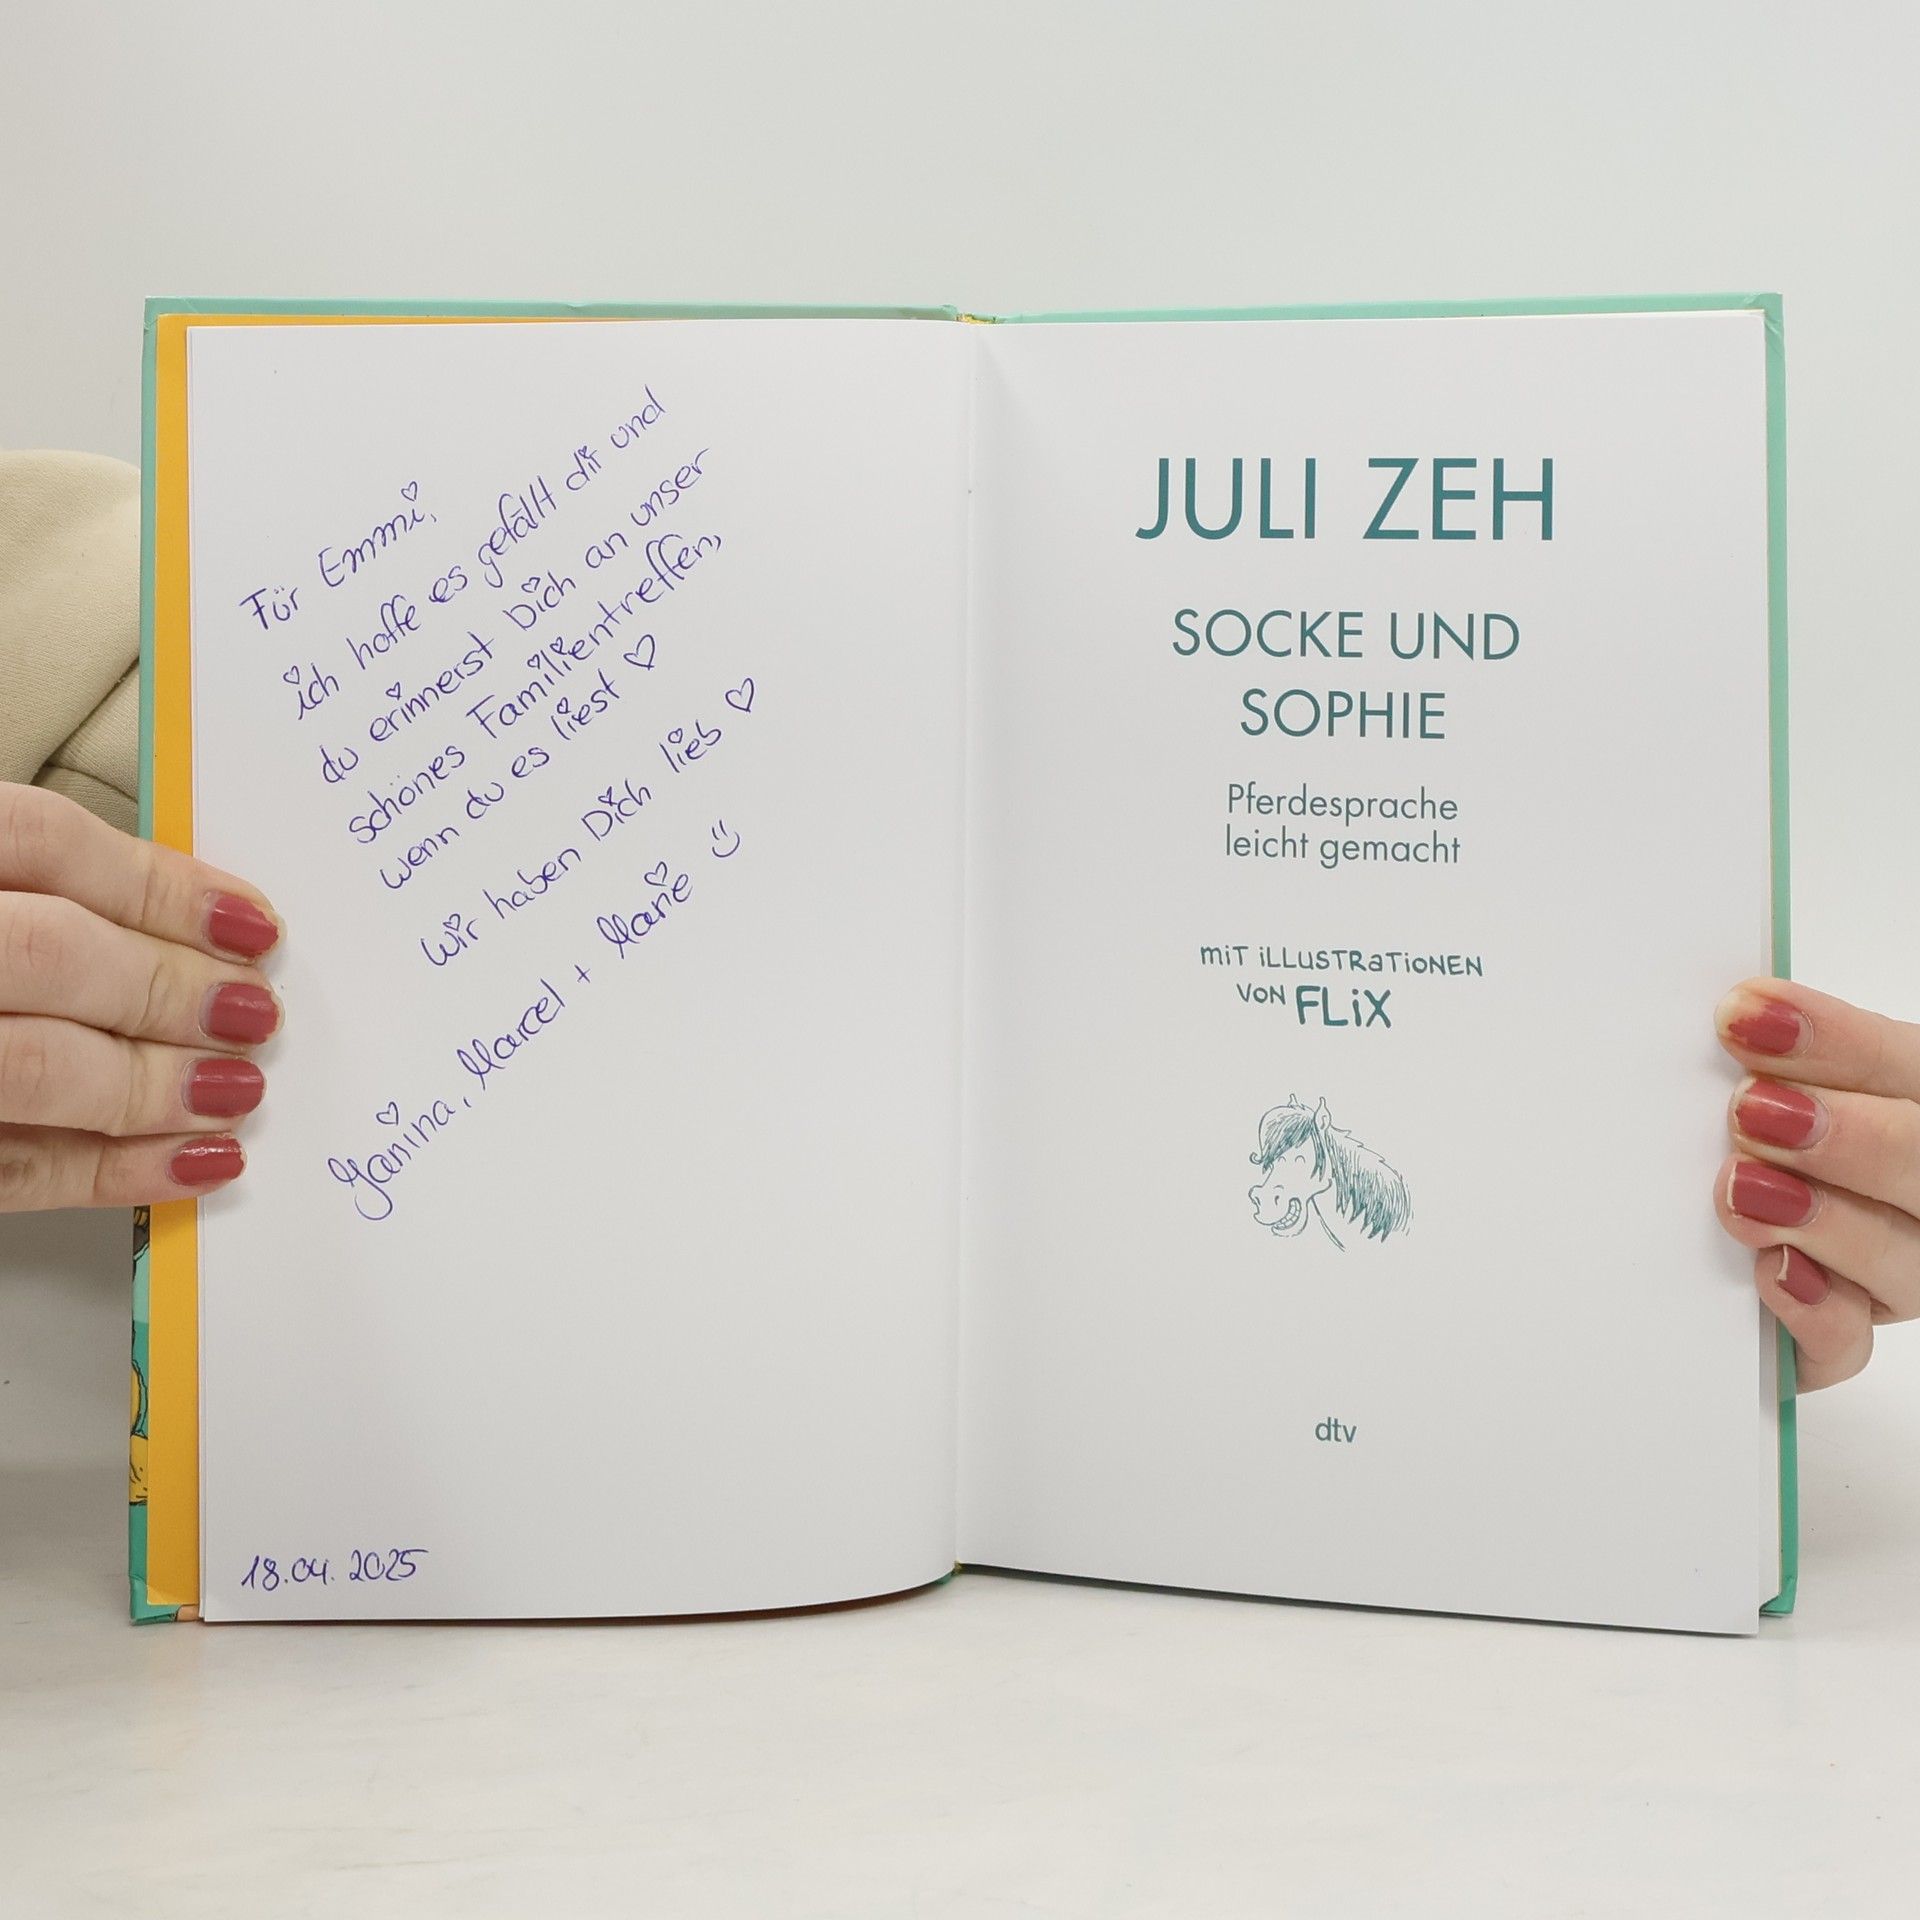 Für Emmi,
ich hoffe es gefällt dir und
du erinnerst Dich an unser
schönes Familientreffen,
wenn du es liest ♡
Wir haben Dich lieb ♡
Janina, Marcel + Marie
18.04.2025
JULI ZEH
SOCKE UND
SOPHIE
Pferdesprache
leicht gemacht
MiT iLLUSTRaTiONEN
VON FLiX
dtv